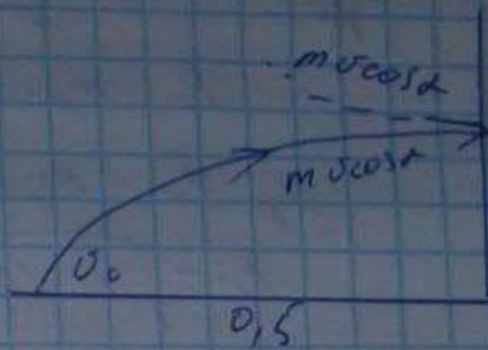 mυcosα
mυcosα
υ₀
0,5